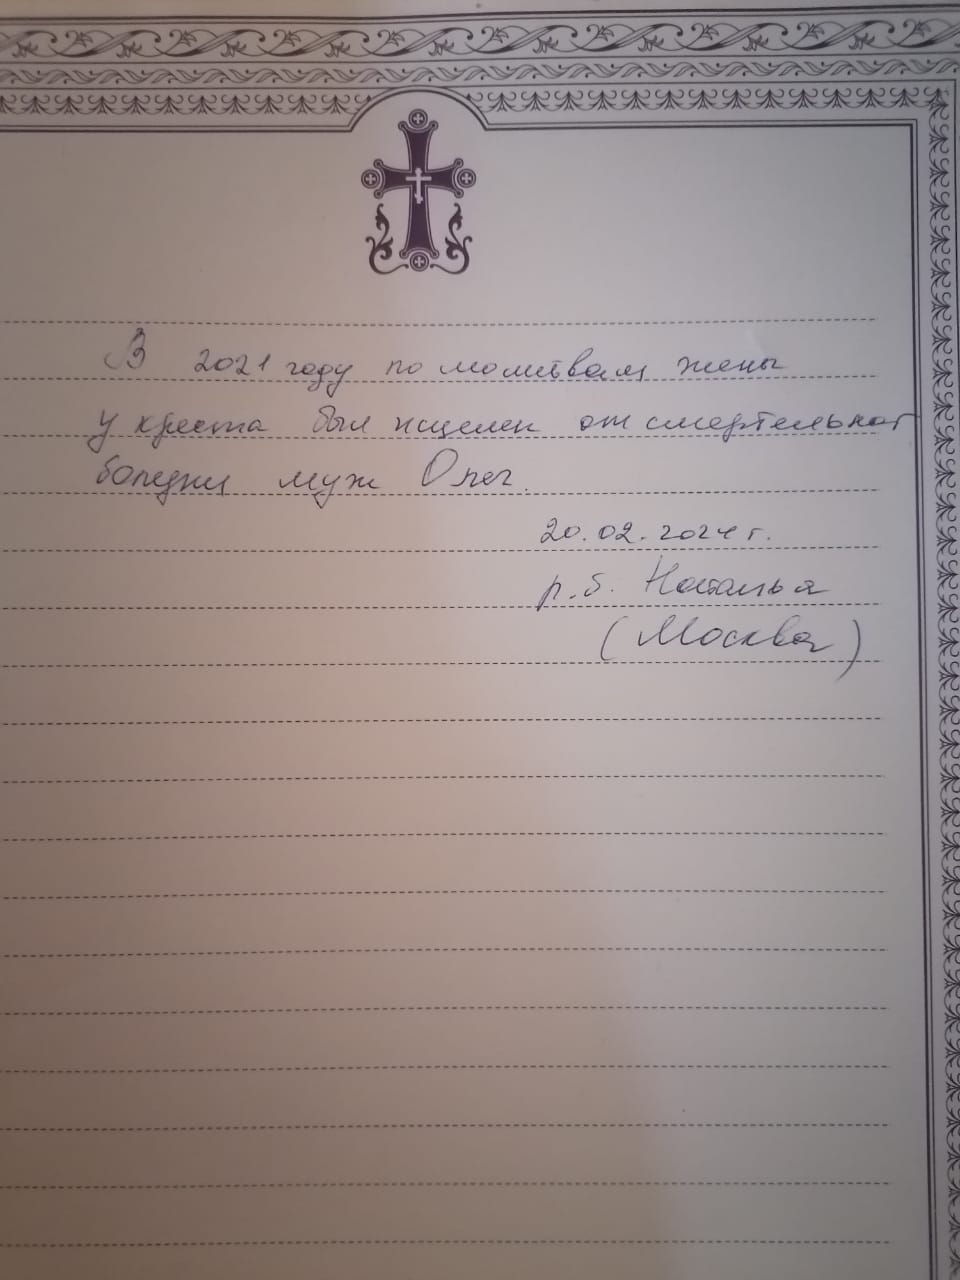 В 2021 году по молитвам жены
у креста был исцелен от смертельной
болезни муж Олег.
20.02.2024 г.
р.б. Наталья
(Москва)